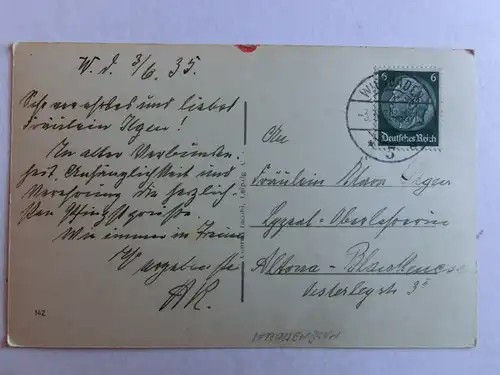 W. d. 3/6. 35.
Sehr verehrtes und liebes
Fräulein Ilgen!
In alter Verbunden-
heit, Anhänglichkeit und
Verehrung die herzlich-
sten Pfingstgrüsse.
Wie immer in Treue
Ihr ergebenster
AR.
142
6 6
Deutsches Reich
5
An
Fräulein Klara Ilgen
Lyzeal-Oberlehrerin
Altona-Blankenese
Oesterlegstr 35